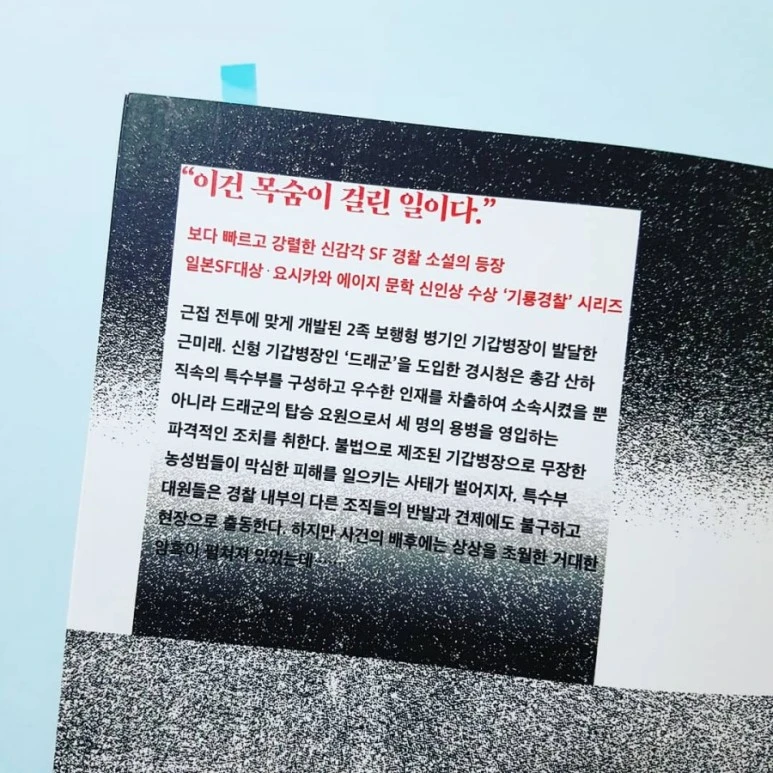 “이건 목숨이 걸린 일이다.”
보다 빠르고 강렬한 신감각 SF 경찰 소설의 등장
일본SF대상·요시카와 에이지 문학 신인상 수상 ‘기룡경찰’ 시리즈
근접 전투에 맞게 개발된 2족 보행형 병기인 기갑병장이 발달한
근미래. 신형 기갑병장인 ‘드래군’을 도입한 경시청은 총감 산하
직속의 특수부를 구성하고 우수한 인재를 차출하여 소속시켰을 뿐
아니라 드래군의 탑승 요원으로서 세 명의 용병을 영입하는
파격적인 조치를 취한다. 불법으로 제조된 기갑병장으로 무장한
농성범들이 막심한 피해를 일으키는 사태가 벌어지자, 특수부
대원들은 경찰 내부의 다른 조직들의 반발과 견제에도 불구하고
현장으로 출동한다. 하지만 사건의 배후에는 상상을 초월한 거대한
암흑이 펼쳐져 있었는데……